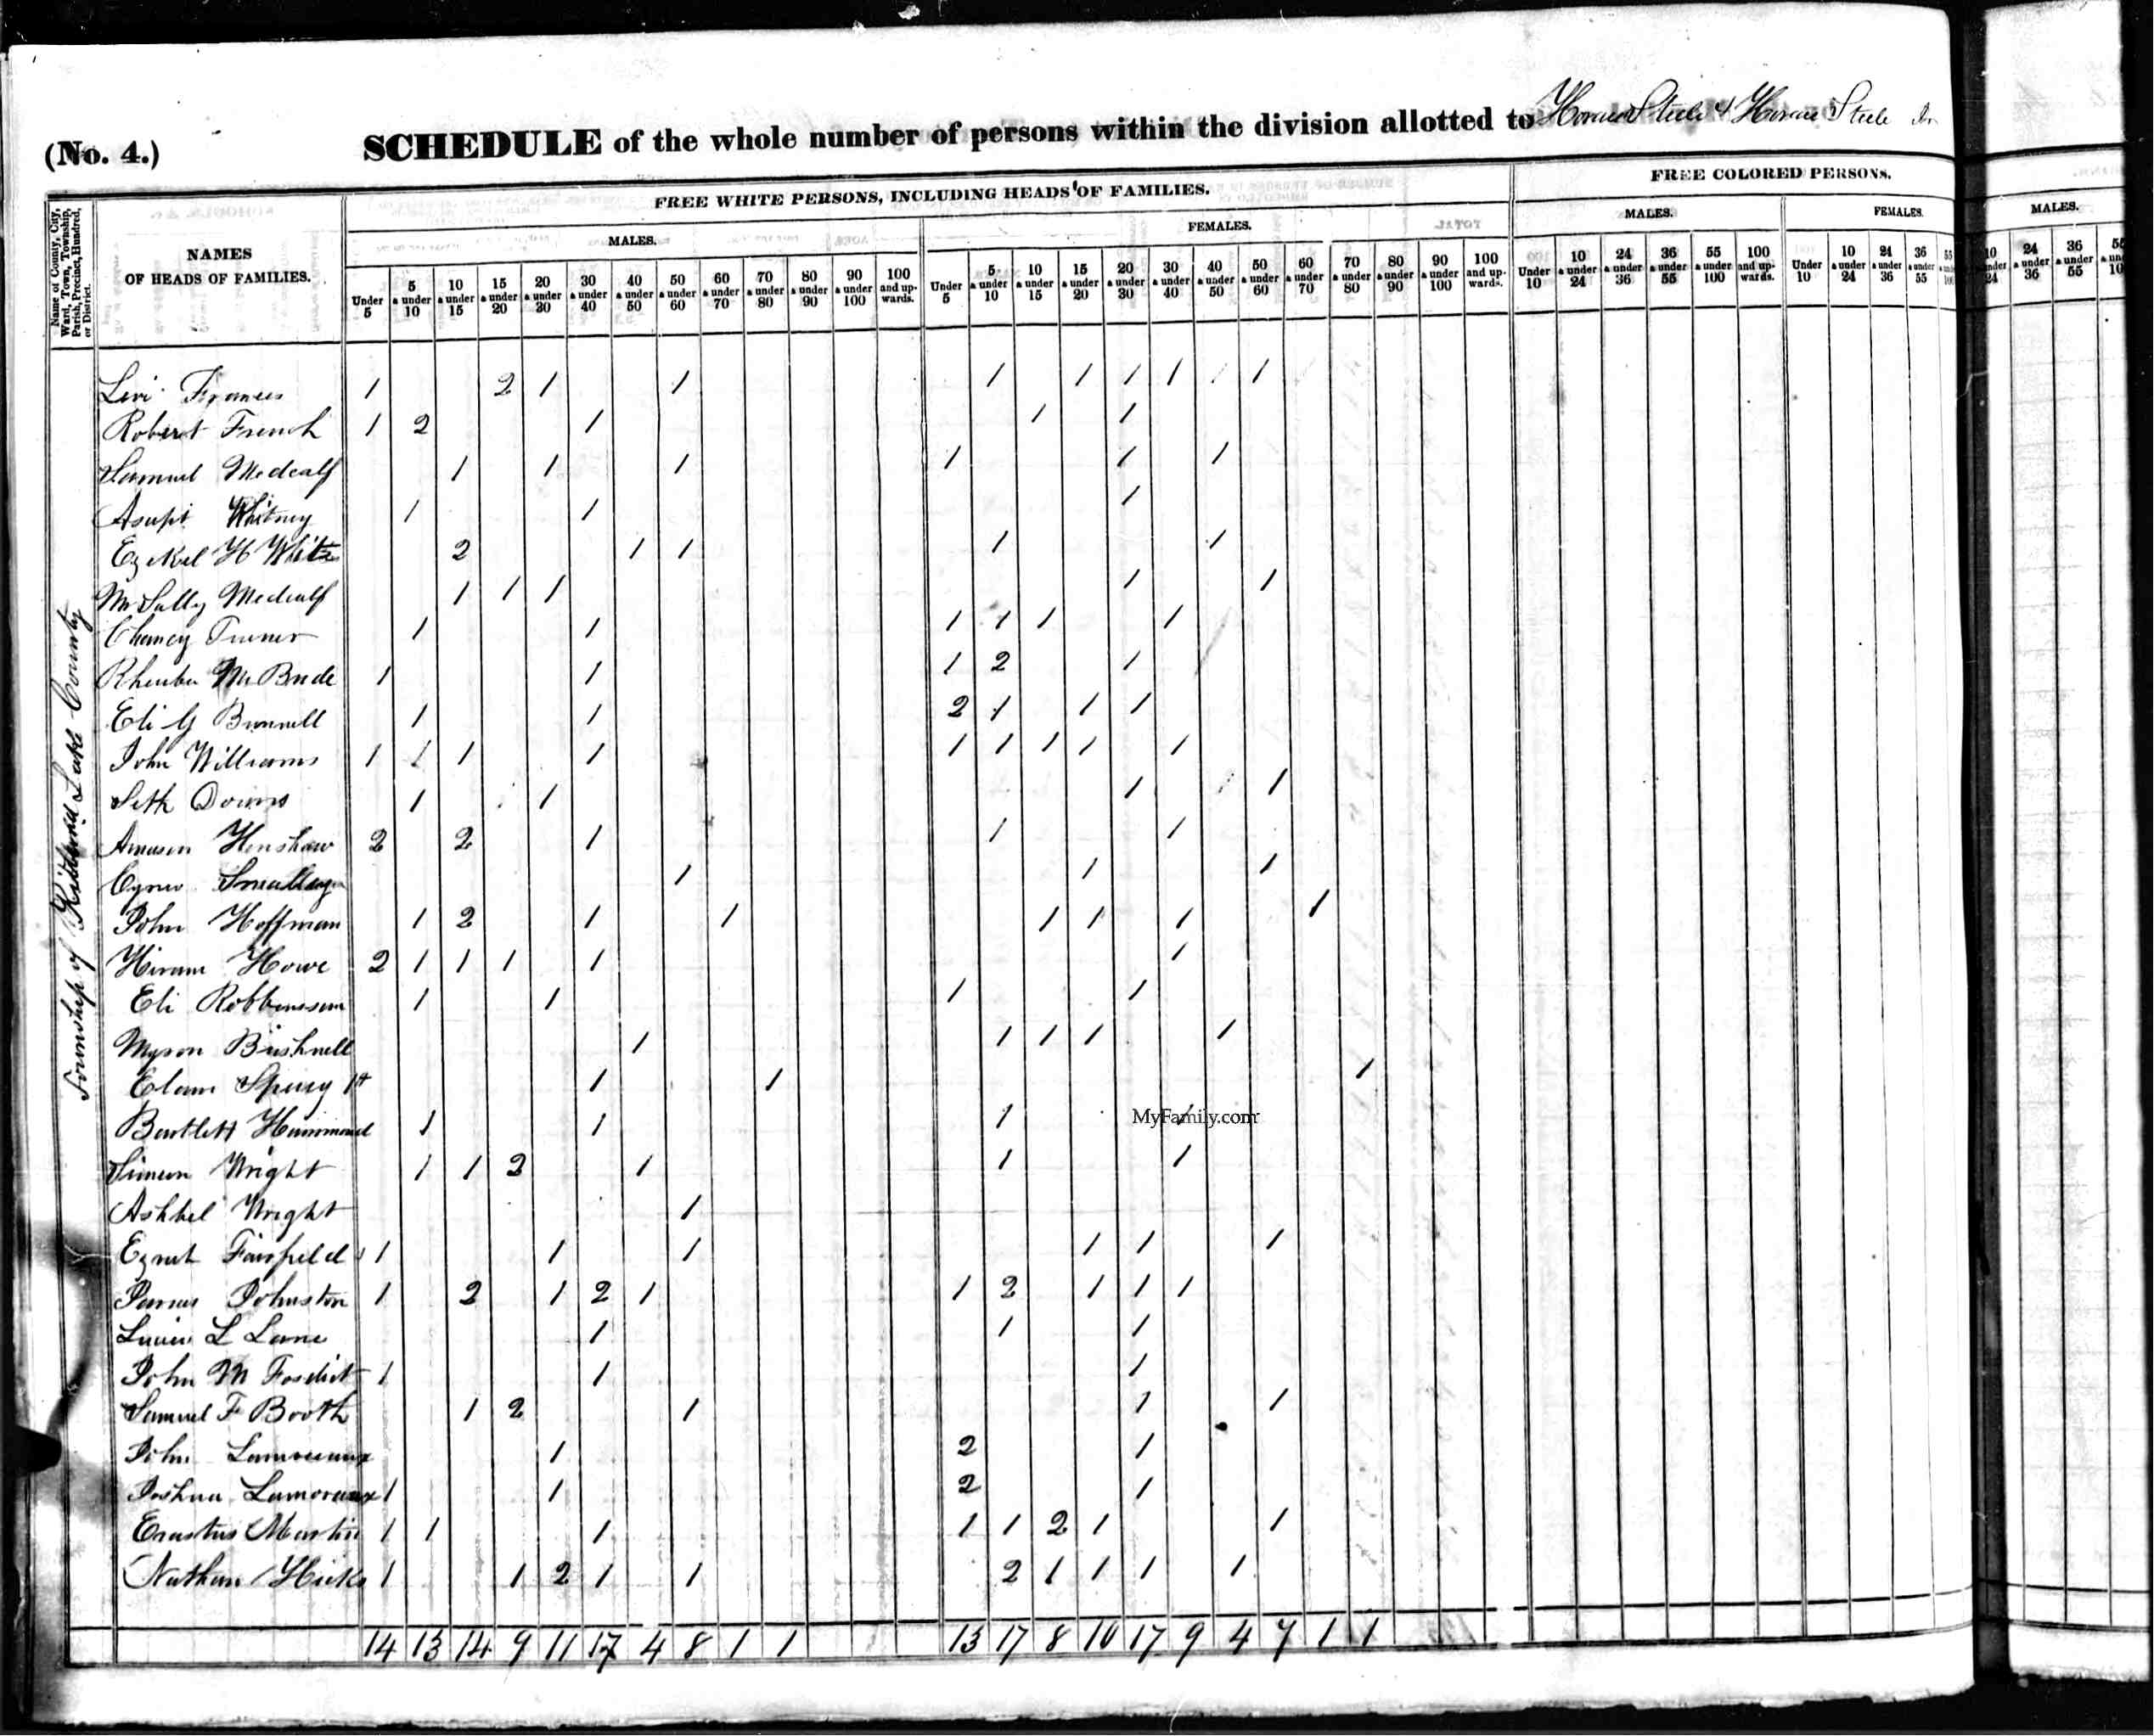 (No. 4.) SCHEDULE of the whole number of persons within the division allotted to Horace Steele & Horace Steele Jr
FREE WHITE PERSONS, INCLUDING HEADS OF FAMILIES. FREE COLORED PERSONS.
MALES. FEMALES. MALES. FEMALES. MALES.
Name of County, City, Ward, Town, Township, Parish, Precinct, Hundred, or District.
NAMES OF HEADS OF FAMILIES.
Under 5 5 & under 10 10 & under 15 15 & under 20 20 & under 30 30 & under 40 40 & under 50 50 & under 60 60 & under 70 70 & under 80 80 & under 90 90 & under 100 100 and upwards.
Under 5 5 & under 10 10 & under 15 15 & under 20 20 & under 30 30 & under 40 40 & under 50 50 & under 60 60 & under 70 70 & under 80 80 & under 90 90 & under 100 100 and upwards.
Under 10 10 & under 24 24 & under 36 36 & under 55 55 & under 100 100 and upwards.
Under 10 10 & under 24 24 & under 36 36 & under 55
Township of Lake County
Levi Frances 1 2 1 1 1 1 1 1 1
Robert French 1 2 1 1 1
Samuel Medcalf 1 1 1 1 1 1
Whitney 1 1 1
Ezekel H White 2 1 1 1 1
Mrs Sally Medcalf 1 1 1 1 1
Chancy Turner 1 1 1 1 1 1
McBride 1 1 1 2 1
Eli G Bunnell 1 1 2 1 1 1
John Williams 1 1 1 1 1 1 1 1 1
Seth Downs 1 1 1 1
Henshaw 2 2 1 1 1
Cyrus 1 1 1
John Hoffman 1 2 1 1 1 1 1 1
Hiram Howe 2 1 1 1 1 1
Eli Robbinsson 1 1 1 1
Myron Bushnell 1 1 1 1 1
Elam 1 1 1
Bartlett Hammond 1 1 1 1
MyFamily.com
Simeon Wright 1 1 2 1 1 1
Ashbel Wright 1
Fairfield 1 1 1 1 1 1
Johnston 1 2 1 2 1 1 2 1 1 1
L Lane 1 1 1
John M Fosdict 1 1 1
Samuel F Booth 1 2 1 1 1
John Lamoreaux 1 2 1
Joshua Lamoreaux 1 1 2 1
Erastus Martin 1 1 1 1 1 2 1 1
Nathan Hicks 1 1 2 1 1 2 1 1 1 1
14 13 14 9 11 17 4 8 1 1 13 17 8 10 17 9 4 7 1 1